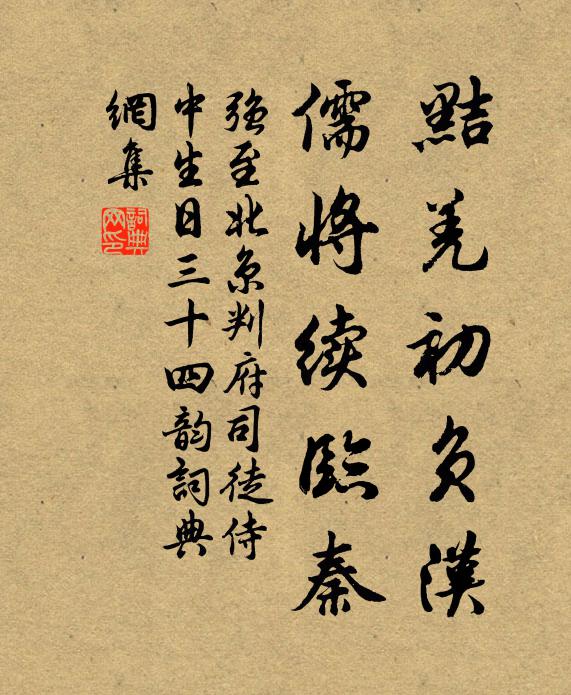 黠羌初负漢
儒將续臨秦
强至北京判府司徒侍
中生日三十四韵詞典
網集
詞典
网印